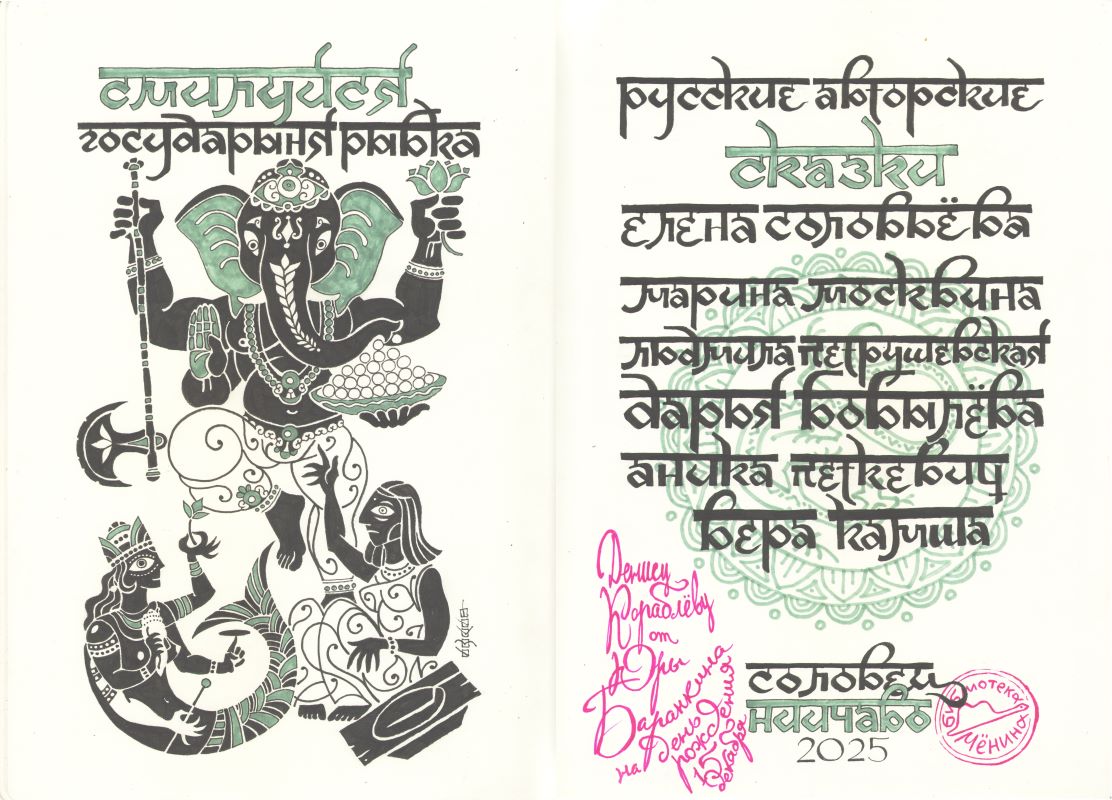 смилуйся
государыня рыбка
русские авторские
сказки
елена соловьёва
марина москвина
людмила петрушевская
дарья бобылёва
аника петкевич
вера камша
Денису
Кораблёву
от
Юры
Баранкина
на день
рождения
15
декабря
соловец
ниичаво
2025
библиотека
Мёнина